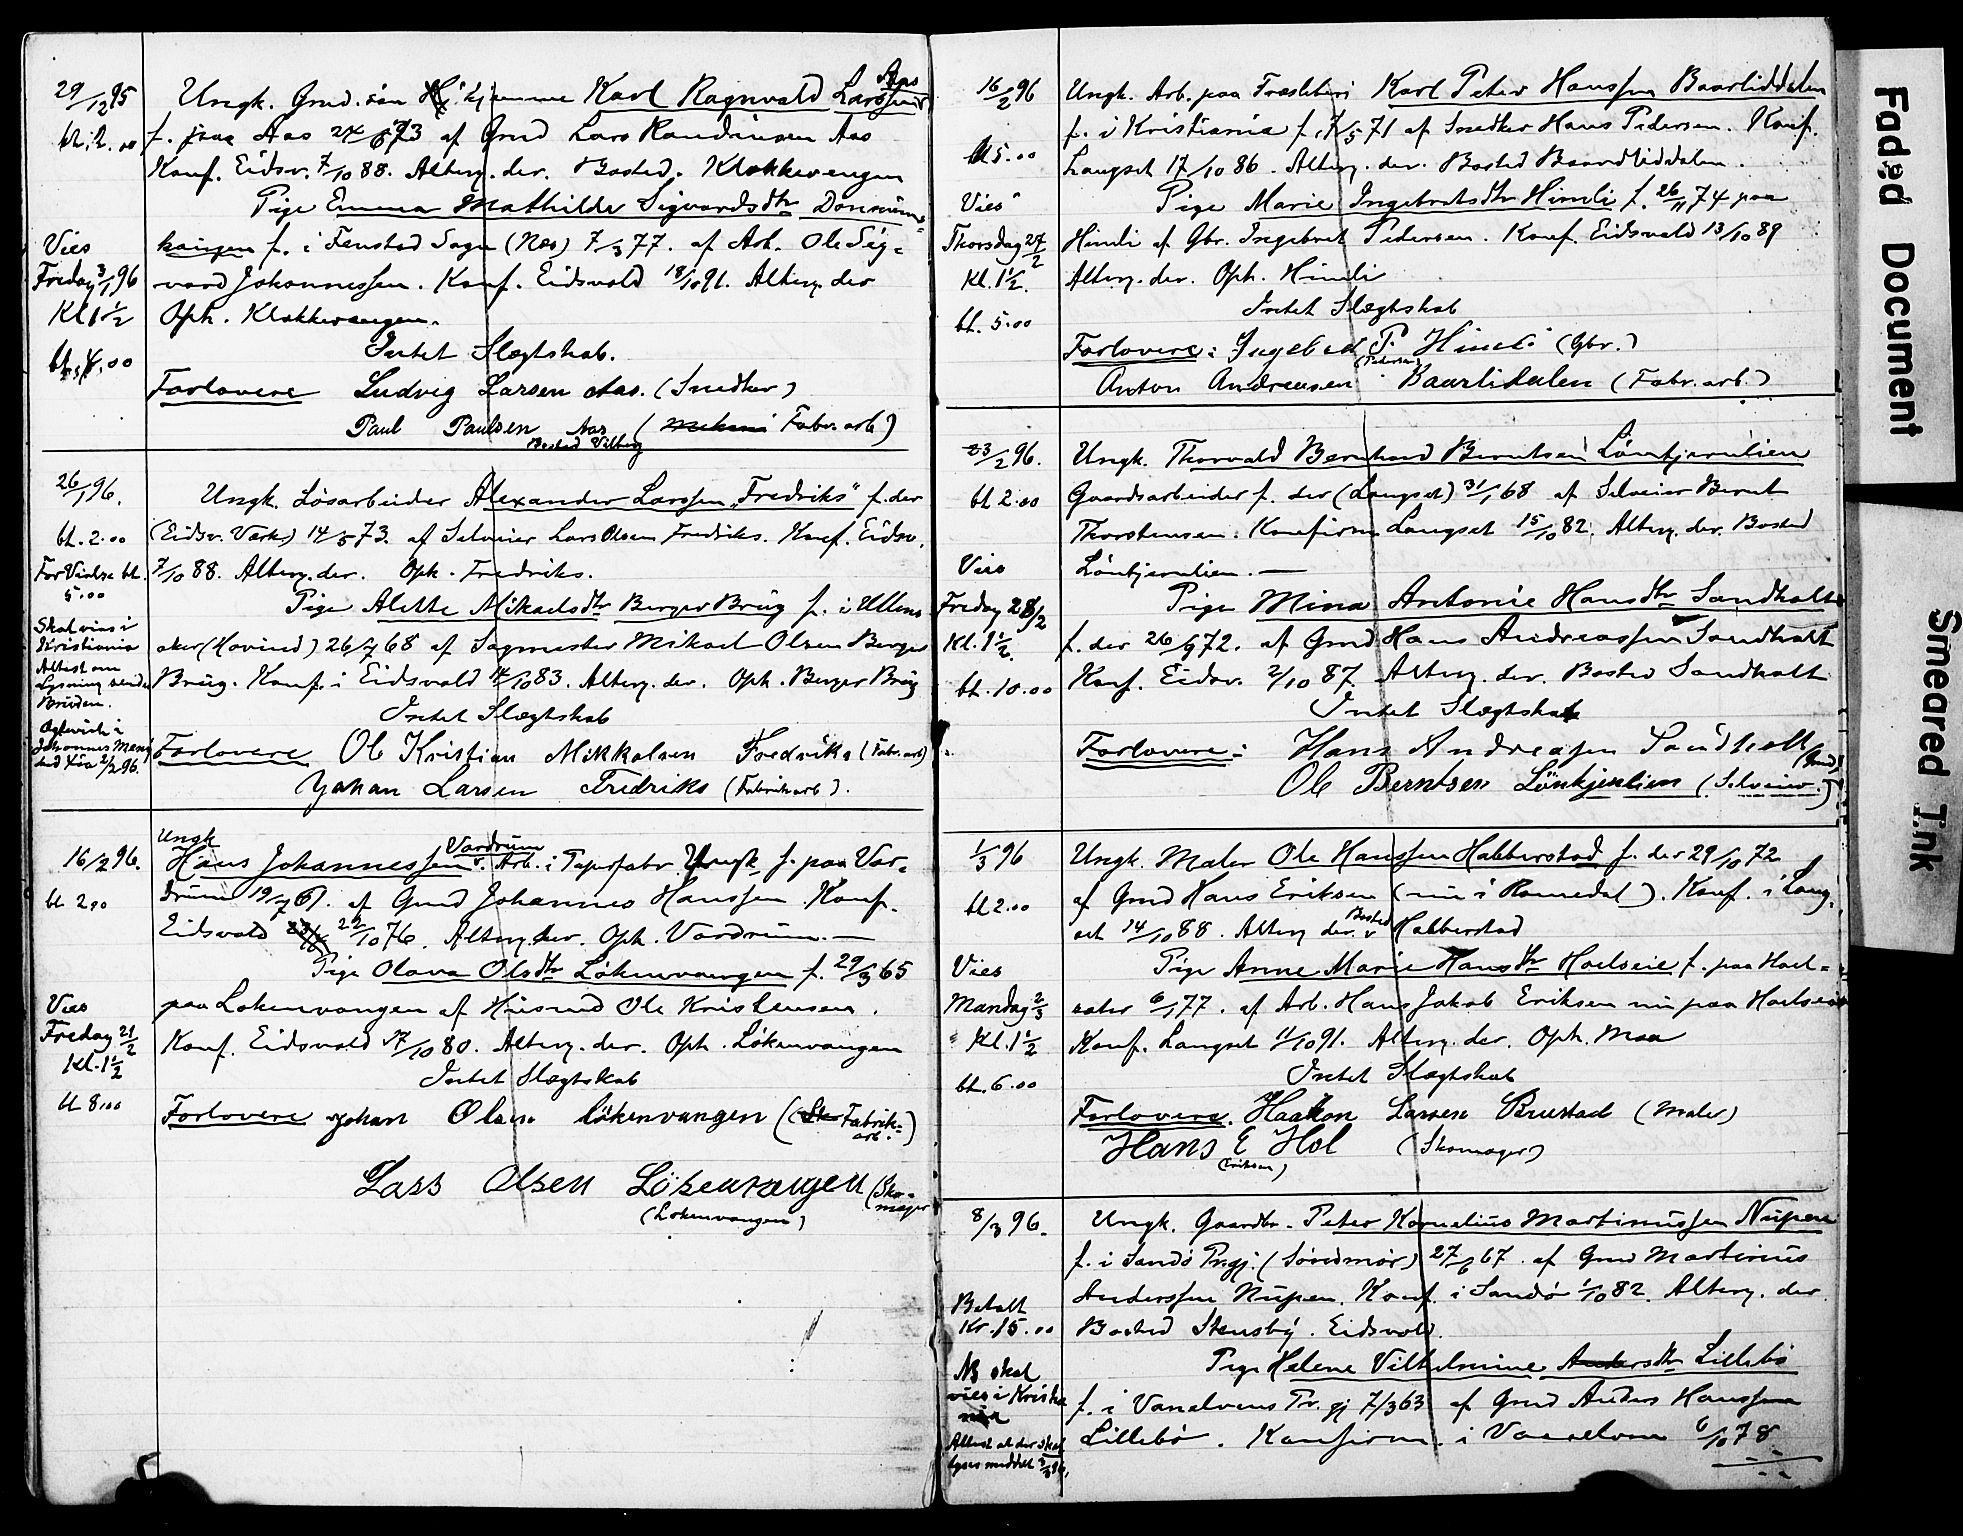 29/12 95
bt. 2.00
Ungk. Grmd. sön hjemme Karl Ragnvald Larssen Aas
f. paa Aas 24/6 73 af Grmd Lars Knudsen Aas
Konf. Eidsv. 7/10 88. Alterg. der. Bosted. Klokkervangen
Pige Emma Mathilde Sigvardsdtr
f. i Fenstad Sogn (Næs) 7/3 77. af Arb. Ole Sig-
vard Johannessen. Konf. Eidsvold 18/10 91. Alterg. der
Oph. Klokkervangen.
Vies
Fredag 3/1 96
Kl 1 1/2
bt. 4.00
Intet Slægtskab.
Forlovere Ludvig Larsen Aas. (Snedker)
Paul Paulsen Aas (Fabr. arb)
Bosted Vilberg
26/1 96.
bt. 2.00
For Vielse bt.
5.00
Skal vies i
Kristiania
Attest om
Lysning sendt
Bruden.
Ungk. Lösarbeider Alexander Larssen "Fredriks" f. der
(Eidsv. Værk) 14/5 73. af Selveier Lars Olsen Fredriks. Konf. Eidsv.
7/10 88. Alterg. der. Oph. Fredriks.
Pige Alette Mikaelsdtr Berger Brug f. i Ullens
aker (Hovind) 26/7 68 af Sagmester Mikael Olsen Berger
Brug. Konf. i Eidsvold 14/10 83. Alterg. der. Oph. Berger Brug
Intet Slægtskab
Forlovere Ole Kristian Mikkelsen Fredriks (Fabr. arb)
Johan Larsen Fredriks (Fabrikarb).
16/2 96.
bt 2.00
Ungk
Hans Johannessen Vardrum Arb. i Papirfabr. f. paa Var-
drum 19/7 61. af Grmd Johannes Hanssen. Konf.
Eidsvold 22/10 76. Alterg. der. Oph. Vardrum. —
Pige Olava Olsdtr Lökenvangen f. 29/3 65
paa Lökenvangen af Husmd Ole Kristensen.
Konf. Eidsvold 17/10 80. Alterg. der. Oph. Lökenvangen
Vies
Fredag 21/2
Kl. 1 1/2
bt 8.00
Intet Slægtskab
Forlovere Johan Olsen Lökenvangen (Fabrik-
arb.)
Lars Olsen Lökenvangen (Sko-
mager
(Lökenvangen)
16/2 96
bt 5.00
Ungk. Arb. paa Træsliberi Karl Peter Hanssen Baarliddalen
f. i Kristiania f. 7/5 71 af Snedker Hans Pedersen. Konf.
Langset 17/10 86. Alterg. der. Bosted Baardliddalen.
Pige Marie Ingebretsdtr Himli f. 26/11 74 paa
Himli af Gbr. Ingebret Pedersen. Konf. Eidsvold 13/10 89
Alterg. der. Oph. Himli
Vies
Thorsdag 27/2
Kl. 1 1/2.
bt. 5.00
Intet Slægtskab
Forlovere: Ingebret P. Himli (Gbr.)
(Pedersen)
Anton Andreasen Baarlidalen (Fabr. arb.)
23/2 96.
bt 2.00
Ungk. Thorvald Bernhard Berntsen Löntjernlien
Gaardsarbeider f. der (Langset) 31/1 68 af Selveier Bernt
Thorstensen. Konfirm. Langset 15/10 82. Alterg. der. Bosted
Löntjernlien. —
Pige Mina Antonie Hansdtr Sandholt
f. der 26/9 72. af Grmd Hans Andreassen Sandholt
Konf. Eidsv. 2/10 87 Alterg. der. Bosted Sandholt
Vies
Fredag 28/2
Kl. 1 1/2.
bt. 10.00
Intet Slægtskab
Forlovere: Hans Andreasen Sandholt (Grmd)
Ole Berntsen Lönkjenlien (Selveier.)
1/3 96
bt 2.00
Ungk. Maler Ole Hanssen Habberstad f. der 29/10 72
af Grmd Hans Eriksen (nu i Romedal). Konf. i Lang-
set 14/10 88. Alterg. der. Bosted Habberstad
Pige Anne Marie Hansdtr Hoelseie f. paa Hoel-
6/1 77. af Arb. Hans Jakob Eriksen nu paa Hoelseie
Konf. Langset 11/10 91. Alterg. der. Oph. Moa
Vies
Mandag 2/3
Kl. 1 1/2
bt. 6.00
Intet Slægtskab
Forlovere. Haakon Larsen Brustad (Maler)
Hans E Hol (Skomager)
(Eriksen)
8/3 96.
Ungk. Gaardbr. Peter Kornelius Martinussen Nupen
f. i Sandö Prgj. (Söndmör) 27/6 67. af Grmd Martinus
Anderssen Nupen. Konf. i Sandö 1/10 82. Alterg. der.
Bosted Stensby. Eidsvold.
Pige Helene Vilhelmine Andersdtr Lillebö
f. i Vanelvens Pr.gj 7/3 63 af Grmd Anders Hanssen
Lillebö. Konfirm. i Vanelven 6/10 78
Betalt
Kr. 15.00
NB skal
vies i Kristia
nia
Attest at der skal
lyses meddelt
Faded Document
Smeared Ink